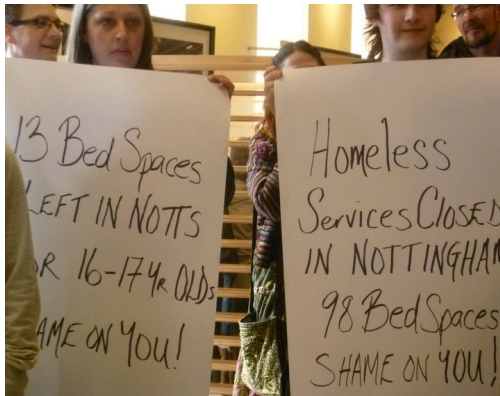 13 Bed Spaces
LEFT IN NOTTS
16-17 Yr OLDs
AME ON YOU!
Homeless
Services CLOSED
IN NOTTINGHAM
98 Bed Spaces
SHAME ON YOU!